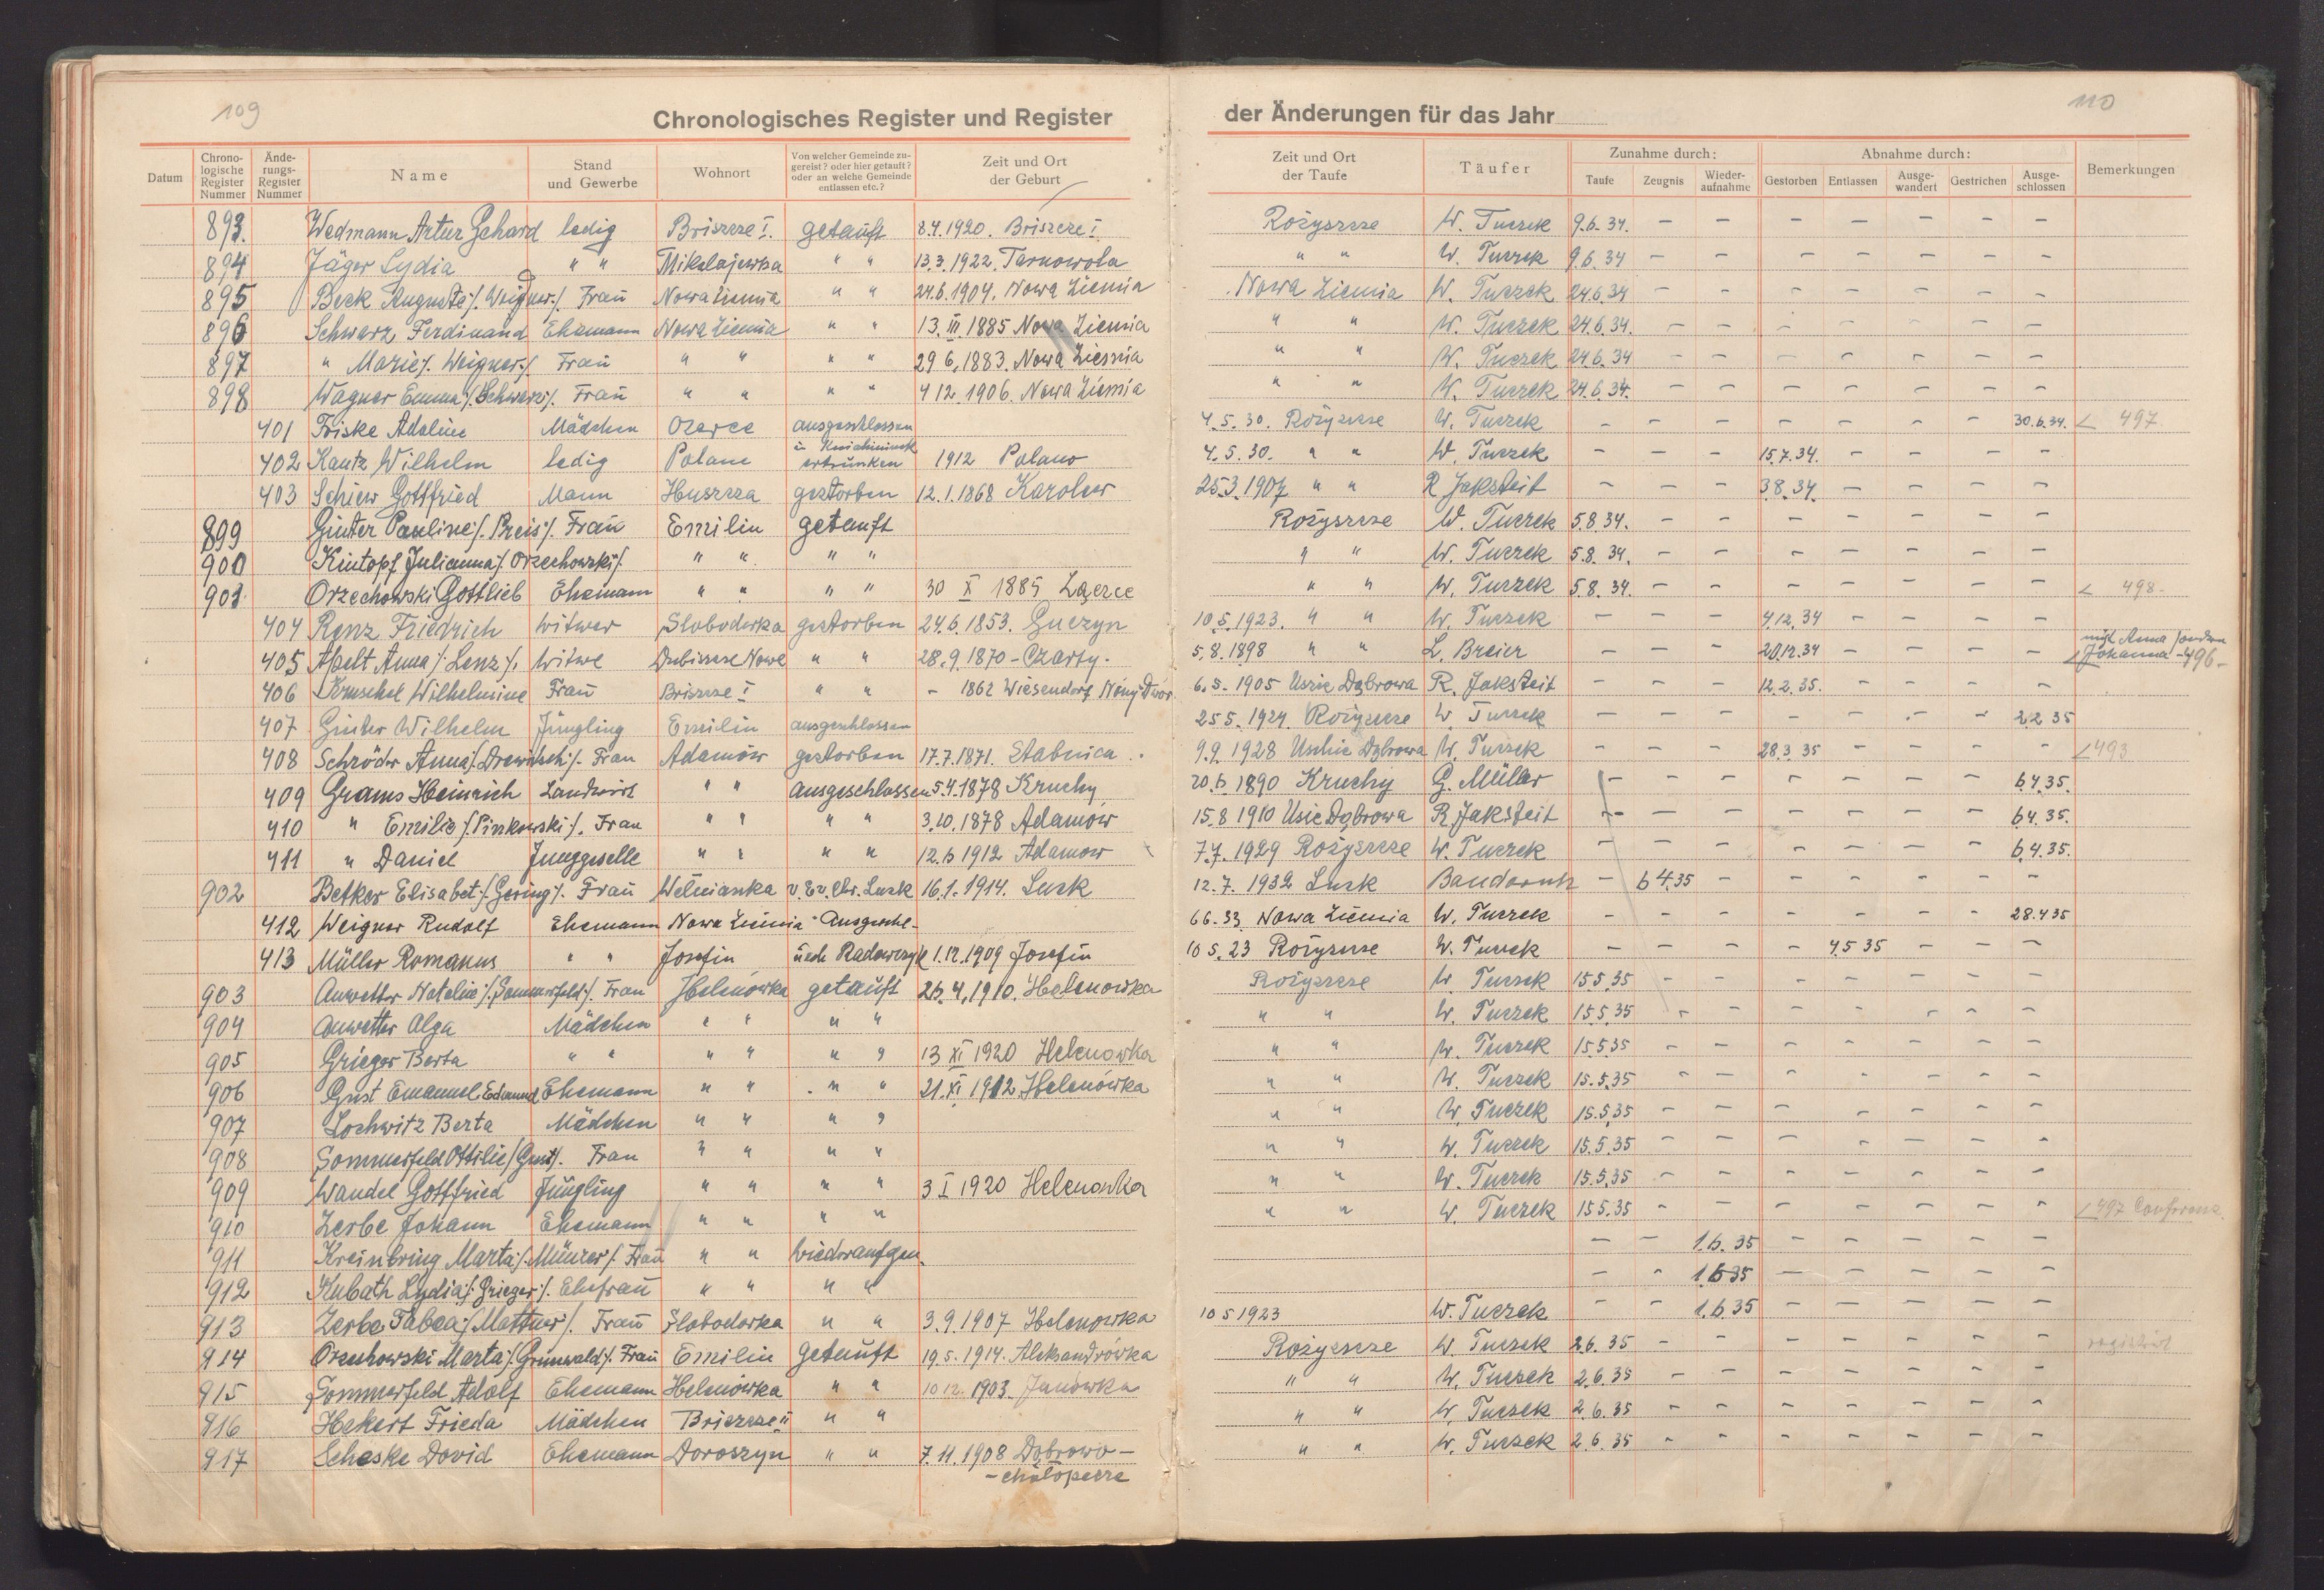 109
Chronologisches Register und Register
Datum
Chrono-
logische
Register
Nummer
Ände-
rungs-
Register
Nummer
Name
Stand
und Gewerbe
Wohnort
Von welcher Gemeinde zu-
gereist? oder hier getauft?
oder an welche Gemeinde
entlassen etc.?
Zeit und Ort
der Geburt
893. Wedmann Artur Gehard ledig Briszcze I. getauft 8.4.1920. Briszcze I.
894 Jäger Lydia " " Mikolajewka " " 13.3.1922. Tarnowola
895 Beck Auguste /. Weigner ./. Frau Nowa Ziemia " " 24.6.1904. Nowa Ziemia
896 Schwarz Ferdinand Ehemann Nowa Ziemia " " 13. III. 1885 Nowa Ziemia
897 " Marie /. Weigner ./. Frau " " " " 29 6. 1883. Nowa Ziemia
898 Wagner Emma /. Schwarz /. Frau " " " " 4 12. 1906. Nowa Ziemia
401 Friske Adeline Mädchen Ozerce ausgeschlossen
402 Kautz Wilhelm ledig Polane ertrunken 1912 Polano
403 Schiew Gottfried Mann Huszcza gestorben 12.1.1868 Karolew
899 Ginter Pauline /. Preis /. Frau Emilin getauft
900 Kintopf Julianna /. Orzechowski /. " " " "
901 Orzechowski Gottlieb Ehemann " " " " 30 X 1885 Lączce
404 Renz Friedrich Witwer Sloboderka gestorben 24.6.1853. Guczyn
405 Apelt Anna /. Lenz /. Witwe Dubiszcze Nowe " " 28.9.1870 - Czarty.
406 Wilhelmine Frau Briszcze I " " - 1862 Wiesendorf Nowy Dwór
407 Ginter Wilhelm Jüngling Emilin ausgeschlossen
408 Schröder Anna /. Drewitsch /. Frau Adamów gestorben 17.7.1871. Stabnica
409 Grams Heinrich Landwirt " " ausgeschlossen 5.4.1878 Kruchy
410 " Emilie /. Pinkowski /. Frau " " " " 3.10.1878 Adamów
411 " Daniel Junggeselle " " " " 12.6 1912 Adamow
902 Betker Elisabet /. Gering /. Frau Wólnianka v. Ev. Chr. Luzk 16.1.1914. Luzk
412 Weigner Rudolf Ehemann Nowa Ziemia Ausgeschl-
413 Müller Romanus " " Josefin nach Radowczyk 1.12.1909 Josefin
903 Anwetter Natalie /. Sommerfeld /. Frau Helenówka getauft 26.4.1910. Helenowka
904 Anwetter Olga Mädchen " " " "
905 Grieger Berta " " " " " " 13 XI 1920 Helenowka
906 Gust Emanuel Edmund Ehemann " " " " 21. XI 1912 Helenówka
907 Lochwitz Berta Mädchen " " " "
908 Sommerfeld Ottilie /. Gust /. Frau " " " "
909 Wandel Gottfried Jüngling " " " " 3 I 1920 Helenowka
910 Zerbe Johann Ehemann " " " "
911 Kreinbring Marta /. Münzer /. Frau " " Wiederaufgen.
912 Kubath Lydia /. Grieger /. Ehefrau " " " "
913 Zerbe Tabea /. Mattner /. Frau Sloboderka " " 3.9.1907 Helenowka
914 Orzechowski Marta /. Grunwald /. Frau Emilin getauft 19.5.1914. Aleksandrówka
915 Sommerfeld Adolf Ehemann Helenówka " " 10 12. 1903. Janówka
916 Hekert Frieda Mädchen Briszcze II " "
917 Scheske David Ehemann Doroszyn " " 7.11.1908 Dąbrowo-
-chłopecze
110
der Änderungen für das Jahr
Zeit und Ort
der Taufe
Täufer
Zunahme durch:
Taufe
Zeugnis
Wieder-
aufnahme
Abnahme durch:
Gestorben
Entlassen
Ausge-
wandert
Gestrichen
Ausge-
schlossen
Bemerkungen
Rożyszcze W. Tuczek 9.6.34. - - - - - - -
" " W. Tuczek 9.6.34 - - - - - - -
Nowa Ziemia W. Tuczek 24.6.34 - - - - - - -
" " W. Tuczek 24.6.34. - - - - - - -
" " W. Tuczek 24.6.34 - - - - - - -
" " W. Tuczek 24.6.34. - - - - - - -
4.5.30. Rożyszcze W. Tuczek - - - - - - - 30.6.34. < 497.
4.5.30. " " W. Tuczek - - - 15.7.34. - - - -
25.3.1907 " " R. Jaksteit - - - 3.8.34. - - - -
Rożyszcze W. Tuczek 5.8.34. - - - - - - -
" " W. Tuczek 5.8.34. - - - - - - -
" " W. Tuczek 5.8.34. - - - - - - - < 498.
10.5.1923. " " W. Tuczek - - - 4.12.34 - - - -
5.8.1898 " " L. Breier - - - 20.12.34 - - - - nicht Anna sondern
Johanna - 496 -
6.5.1905 Uszic Dąbrowa R. Jaksteit - - - 12.2.35. - - - -
25 5. 1924. Rożyszcze W. Tuczek - - - - - - - 2.2 35
9.9.1928 Uschic Dąbrowa W. Tuczek - - - 28.3.35 - - - - < 493
20.6 1890 Kruchy G. Müller - - - - - - - 6.4.35.
15.8 1910 Usic Dąbrowa R. Jaksteit - - - - - - - 6.4.35.
7.7.1929 Rożyszcze W. Tuczek - - - - - - - 6.4.35.
12.7.1932 Luzk - 6 4.35 - - - - - -
6 6. 33 Nowa Ziemia W. Tuczek - - - - - - - 28.4 35
10 5. 23 Rożyszcze W. Tuczek - - - - 4.5 35 - - -
Rożyszcze W. Tuczek 15.5.35 - - - - - - -
" " W. Tuczek 15.5.35 - - - - - - -
" " W. Tuczek 15.5.35 - - - - - - -
" " W. Tuczek 15.5.35 - - - - - - -
" " W. Tuczek 15.5.35 - - - - - - -
" " W. Tuczek 15.5.35 - - - - - - -
" " W. Tuczek 15.5.35 - - - - - - -
" " W. Tuczek 15.5.35 - - - - - - - < 497
- - 1.6.35 - - - - -
- - 1.6 35 - - - - -
10 5 1923 W. Tuczek - - 1.6.35 - - - - -
Rożyszcze W. Tuczek 2.6.35 - - - - - - - registriert
" " W. Tuczek 2.6.35 - - - - - - -
" " W. Tuczek 2.6.35 - - - - - - -
" " W. Tuczek 2.6.35 - - - - - - -